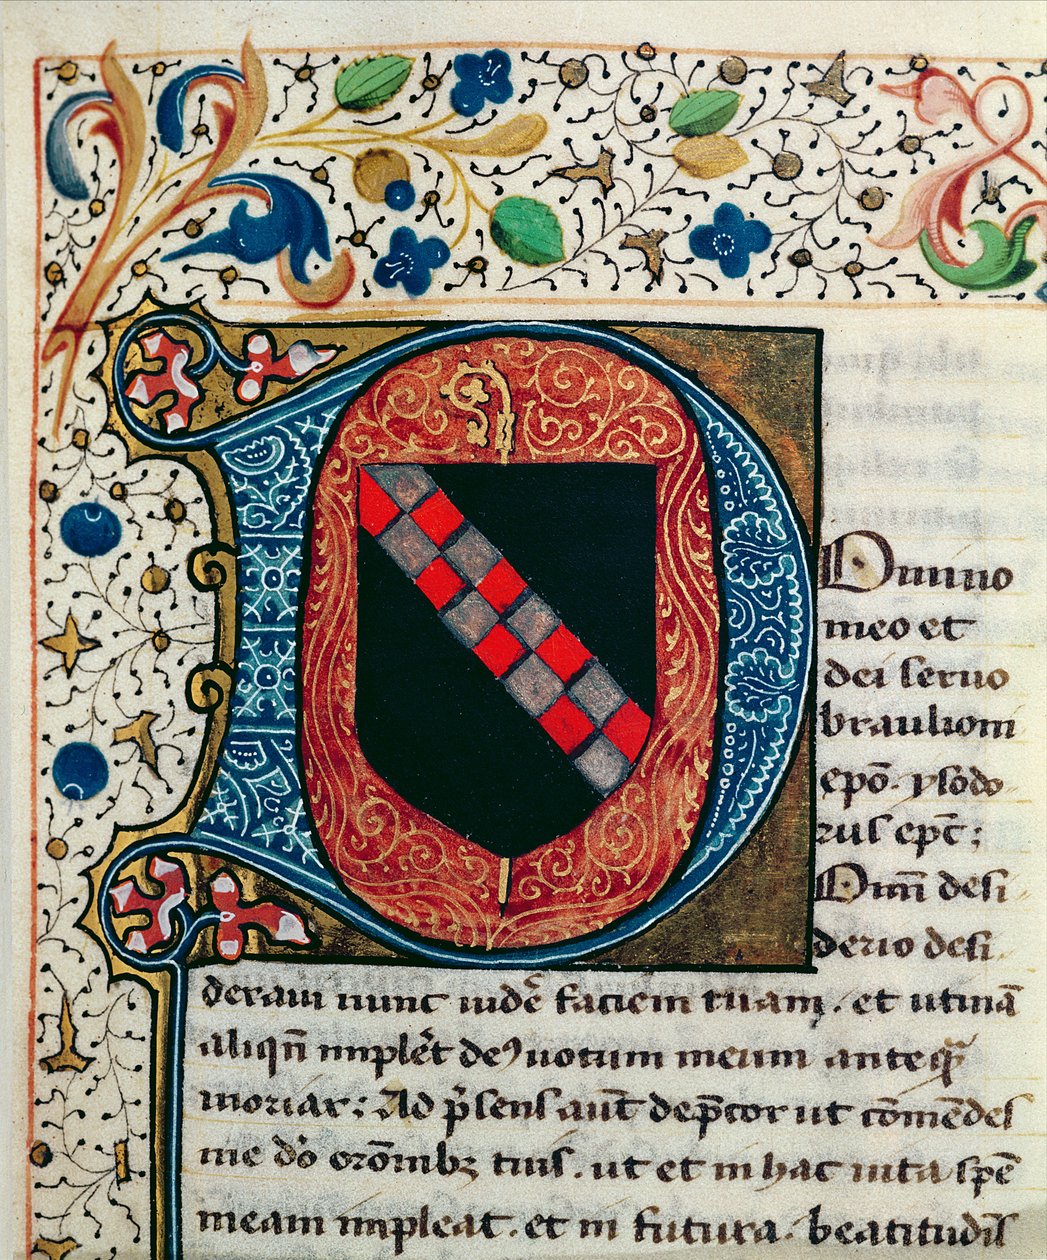 Domino
meo et
dei seruo
braulioni
epō. ysodo
rus epc̄;
Dum̄ desi
derio desi
deraui nunc uidē faciem tuam. et utinā
aliqn̄ implēt deꝰ uotum meum anteq̄ꝫ
moriar; Ad p̄sens aut̄ dep̄cor ut cōmēdes
me dō orōnibꝫ tuis. ut et in hac uita spē
meam impleat. et in futura. beatitudīs